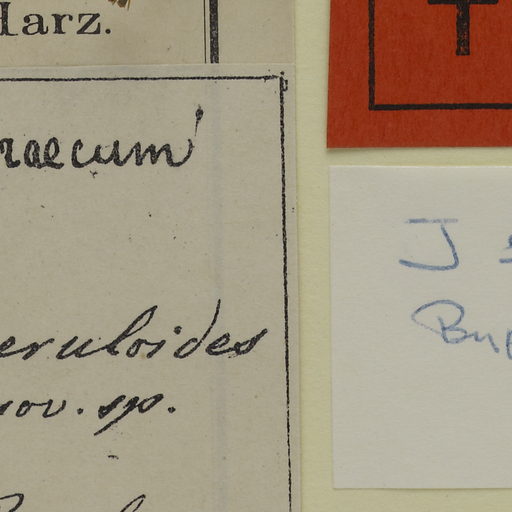 Harz.
raecum
eruloides
nov. sp.
J